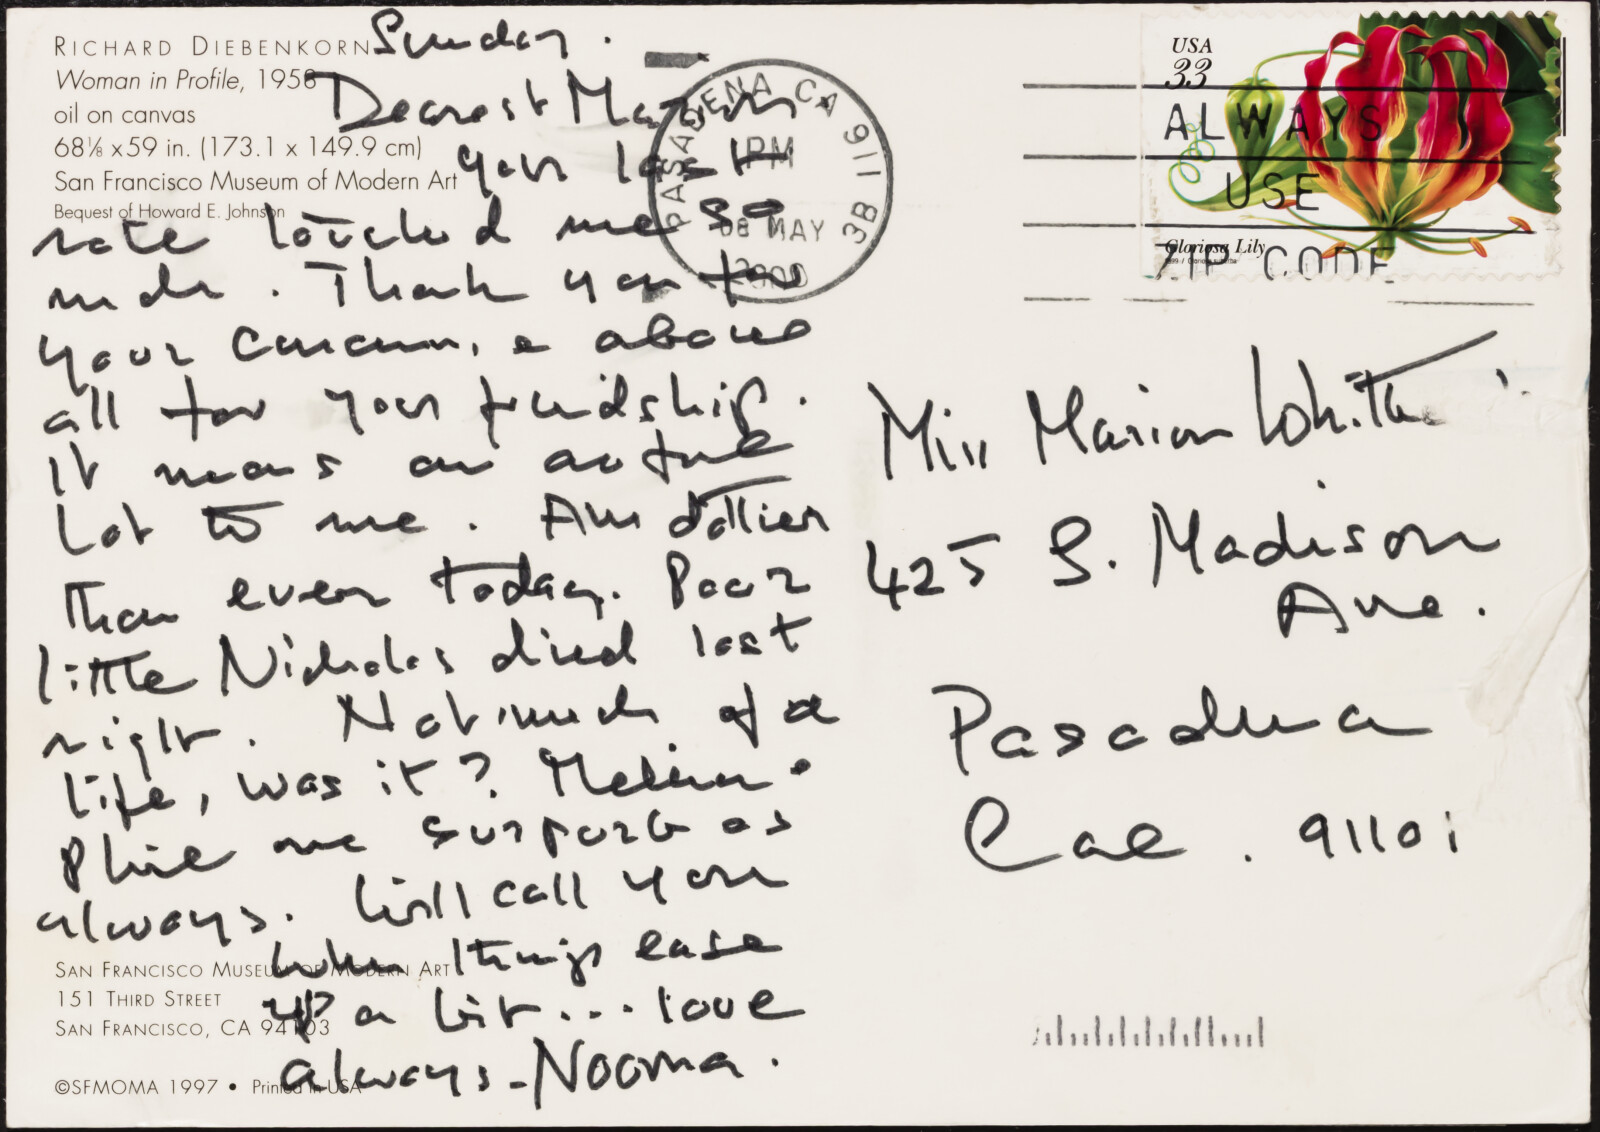 RICHARD DIEBENKORN
Woman in Profile, 1958
oil on canvas
68⅛ x 59 in. (173.1 x 149.9 cm)
San Francisco Museum of Modern Art
Bequest of Howard E. Johnson
Sunday.
Dearest Marion
your last
note touched me so
much. Thank you for
your concern, & above
all for your friendship.
It means an awful
lot to me. Am sadder
than ever today. Poor
little Nicholas died last
night. Not much of a
life, was it?
me support as
always. Will call you
when things ease
up a bit... love
always - Nooma.
SAN FRANCISCO MUSEUM OF MODERN ART
151 THIRD STREET
SAN FRANCISCO, CA 94103
©SFMOMA 1997 • Printed in USA
PASADENA CA 911 3B
PM
08 MAY
2000
USA
33
Gloriosa Lily
ALWAYS
USE
ZIP CODE
Miss Marion White
425 S. Madison
Ave.
Pasadena
Cal. 91101